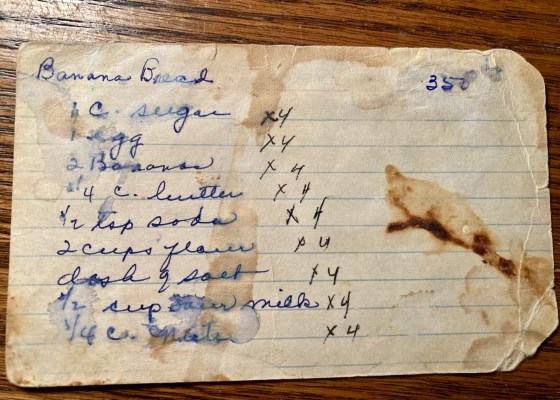 Banana Bread 350
C. sugar x4
1 egg x4
2 Bananas x4
1/4 C. butter x4
1/2 tsp soda x4
2 cups flour x4
dash of salt x4
1/2 cup sour milk x4
1/4 C. nuts x4